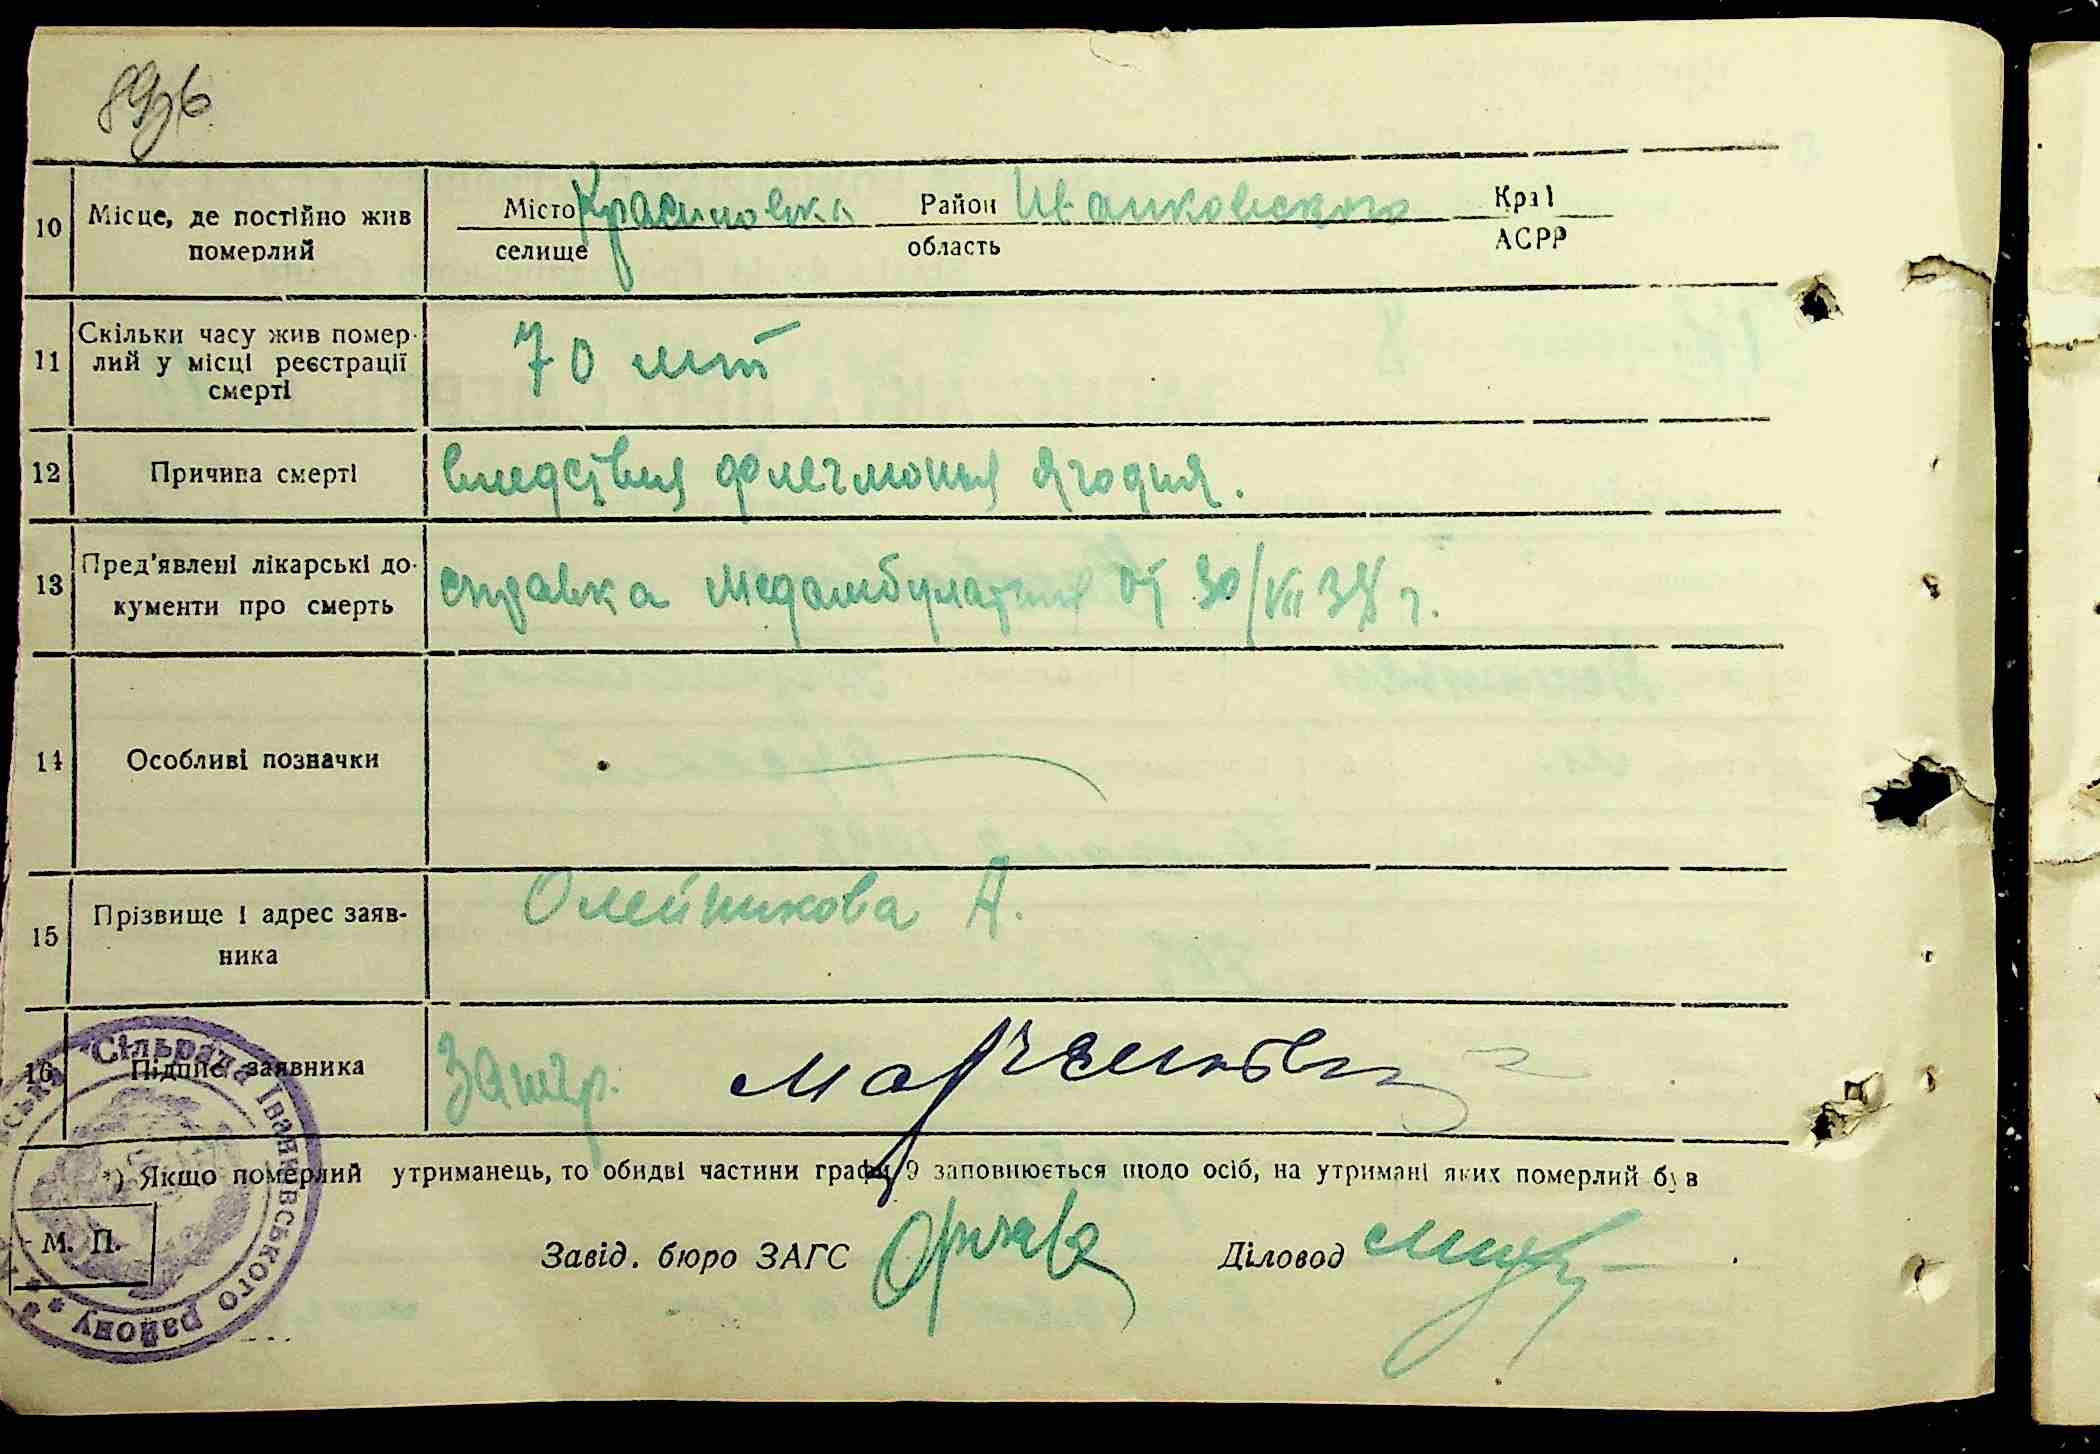 10 Місце, де постійно жив
померлий
Місто Красиловка Район Иванковского Край
селище область АСРР
11 Скільки часу жив помер-
лий у місці реєстрації
смерті
70 лет
12 Причина смерті
вследствия флегмоныя ягодия.
13 Пред'явлені лікарські до-
кументи про смерть
справка медамбулатрии от 30/VII 38 г.
14 Особливі позначки
15 Прізвище і адрес заяв-
ника
Олейникова А.
16 Підпис заявника
*) Якщо померлий утриманець, то обидві частини графи 9 заповнюється щодо осіб, на утримані яких померлий був
М. П.
Завід. бюро ЗАГС
Діловод
Сільрада Іванківського району